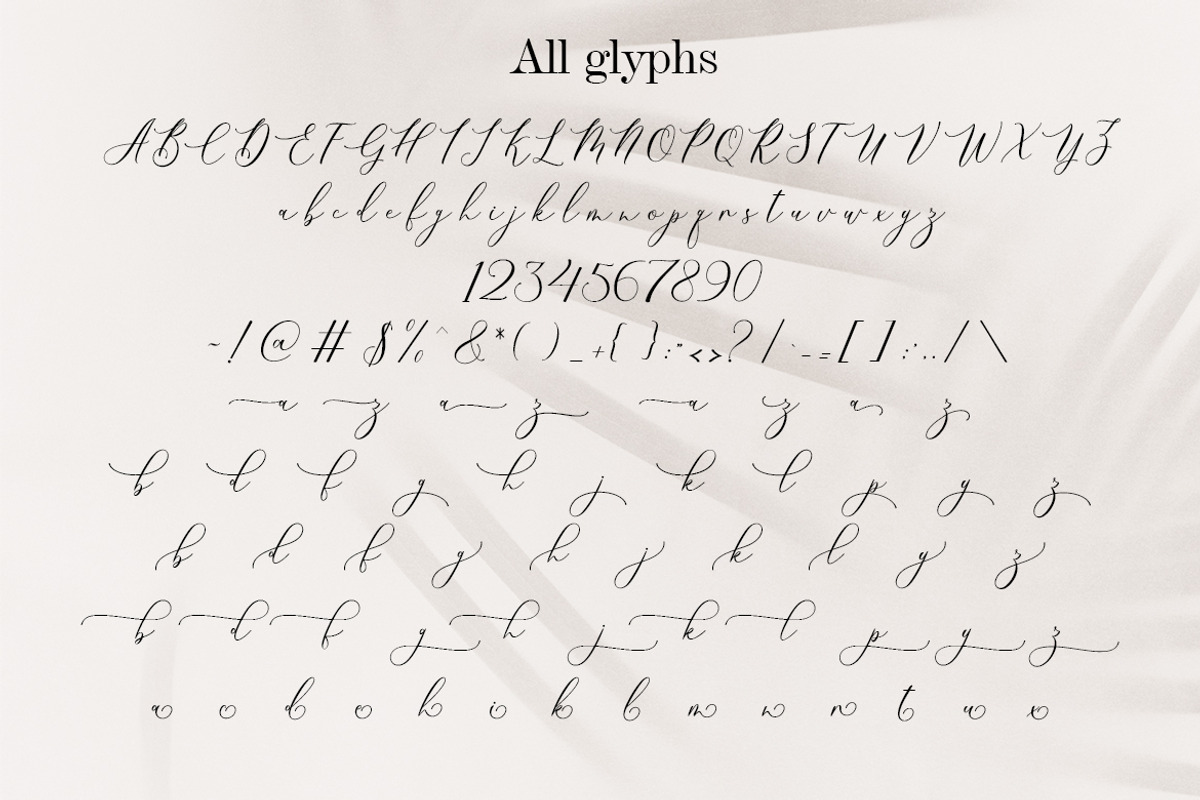 All glyphs
A B C D E F G H I J K L M N O P Q R S T U V W X Y Z
a b c d e f g h i j k l m n o p q r s t u v w x y z
1 2 3 4 5 6 7 8 9 0
~ ! @ # $ % ^ & * ( ) _ + { } : " < > ? / ` - = [ ] ; ' , . / \
a z a z a z a z
b d f g h j k l p y z
b d f g h j k l y z
b d f g h j k l p y z
a c d e h i k l m n r t u x